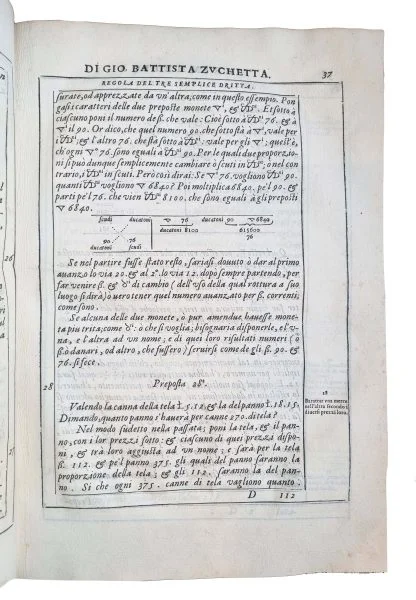 DI GIO. BATTISTA ZVCHETTA. 37
REGOLA DEL TRE SEMPLICE DRITTA.
surate, od apprezzate da vn'altra, come in questo essempio. Pon
gasi i caratteri delle due preposte monete ▽, &
Et sotto à
ciascuno poni il numero de ß. che vale: Cioè sotto
76. & à
il 90. Or dico, che quel numero 90. che sotto stà à ▽, vale per
i
& l'altro 76. che stà sotto à
vale per gli ▽; quest'è,
ch'ogni
76. sono eguali à
90. Per le quali due proporzio-
ni si può dunque semplicemente cambiare ò scuti in
o nel con
trario, i
in scuti. Però così dirai: Se ▽ 76. vogliono
90.
quanti
vogliono ▽ 6840? Poi moltiplica 6840. pe'l 90. &
parti pe'l 76. che vien
8100. & son eguali à gli preposti
▽ 6840.
scudi ducatoni ▽ 76 ducatoni 90 ▽ 6840
ducatoni 8100 615600
90 76 76
ducatoni scudi
Se nel partire fusse stato resto, sariasi douuto ò dar al primo
auanzo lo via 20. & al 2° lo via 12. dopò sempre partendo, per
far venire ß. &
di cambio (dell'vso della qual rottura a suo
luogo si dirà) o vero tener quel numero auanzato per ß. correnti,
come sono.
Se alcuna delle due monete, o pur amendue hauesse mone-
ta piu trita; come
ò che si voglia; bisognaria disporle, el'v-
na, e l'altra ad vn nome; e di quei lor risultati numeri (o
ß. ò danari, od altro, che fussero) seruirsi come de gli ß. 90. &
76. si fece.
28
Preposta 28ª.
28
Valendo la canna della tela
5.12. & la del panno
18.15.
Dimando, quanto panno s'hauerà per canne 270. di tela?
Nel modo sudetto nella passata; poni la tela, & il pan
no, con i lor prezzi sotto: & ciascuno di quei prezzi dispo
ni, & trà loro aggiusta ad vn nome; e sarà per la tela
ß. 112. & pe'l panno 375. gli quali del panno saranno la
proporzione della tela; & gli 112. saranno la del pan-
no. Si che ogni 375. canne di tela vagliono quanto
D 112